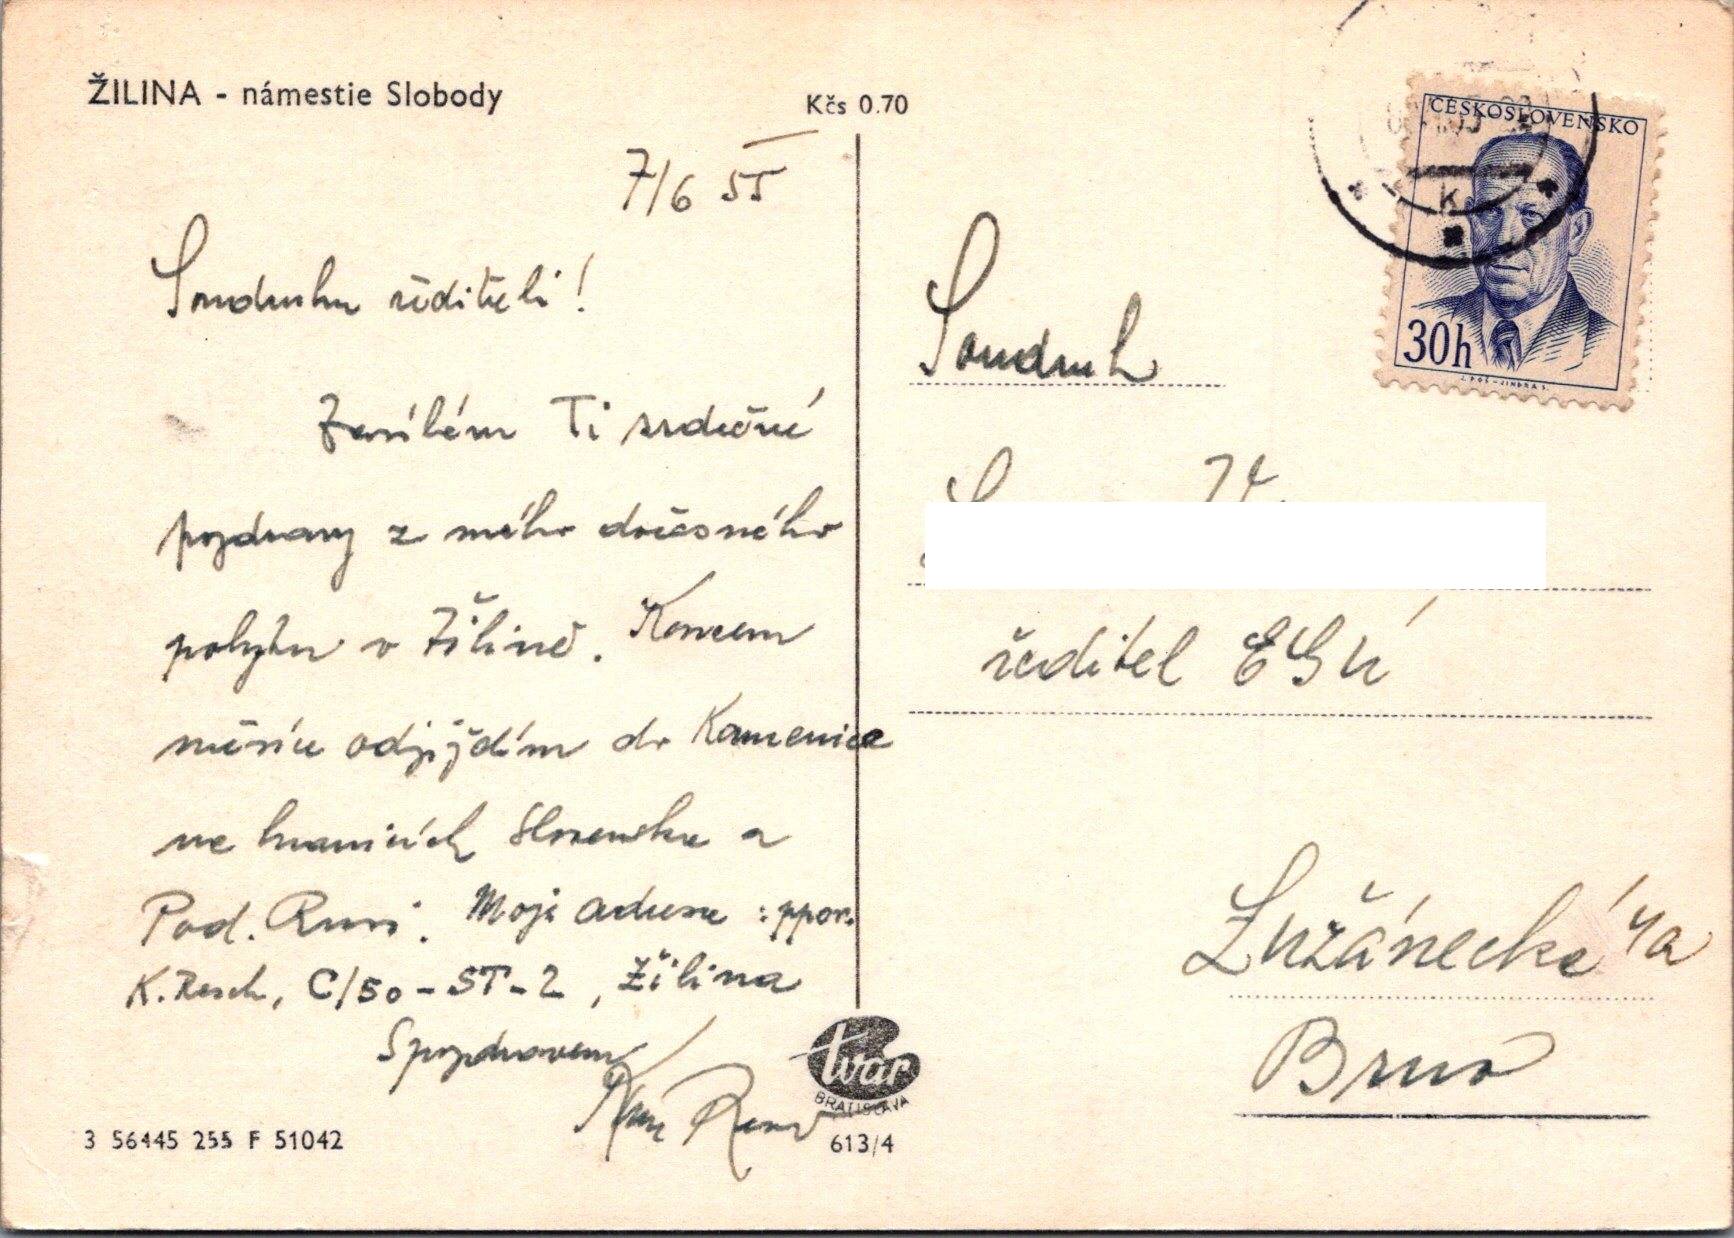 ŽILINA - námestie Slobody
Kčs 0.70
7/6 55
Soudruhu řediteli!
Zasílám Ti srdečné
pozdravy z mého dočasného
pobytu v Žilině. Koncem
měsíce odjíždím do Kamenice
na hranicích Slovenska a
Pod. Rusi. Moje adresa: ppor.
K. Resch, C/50-ST-2, Žilina
S pozdravem
3 56445 255 F 51042
tvar
BRATISLAVA
613/4
ČESKOSLOVENSKO
30h
J. POŠ - JINDRA S.
K
Soudruh
ředitel EGÚ
Lužánecká 4a
Brno